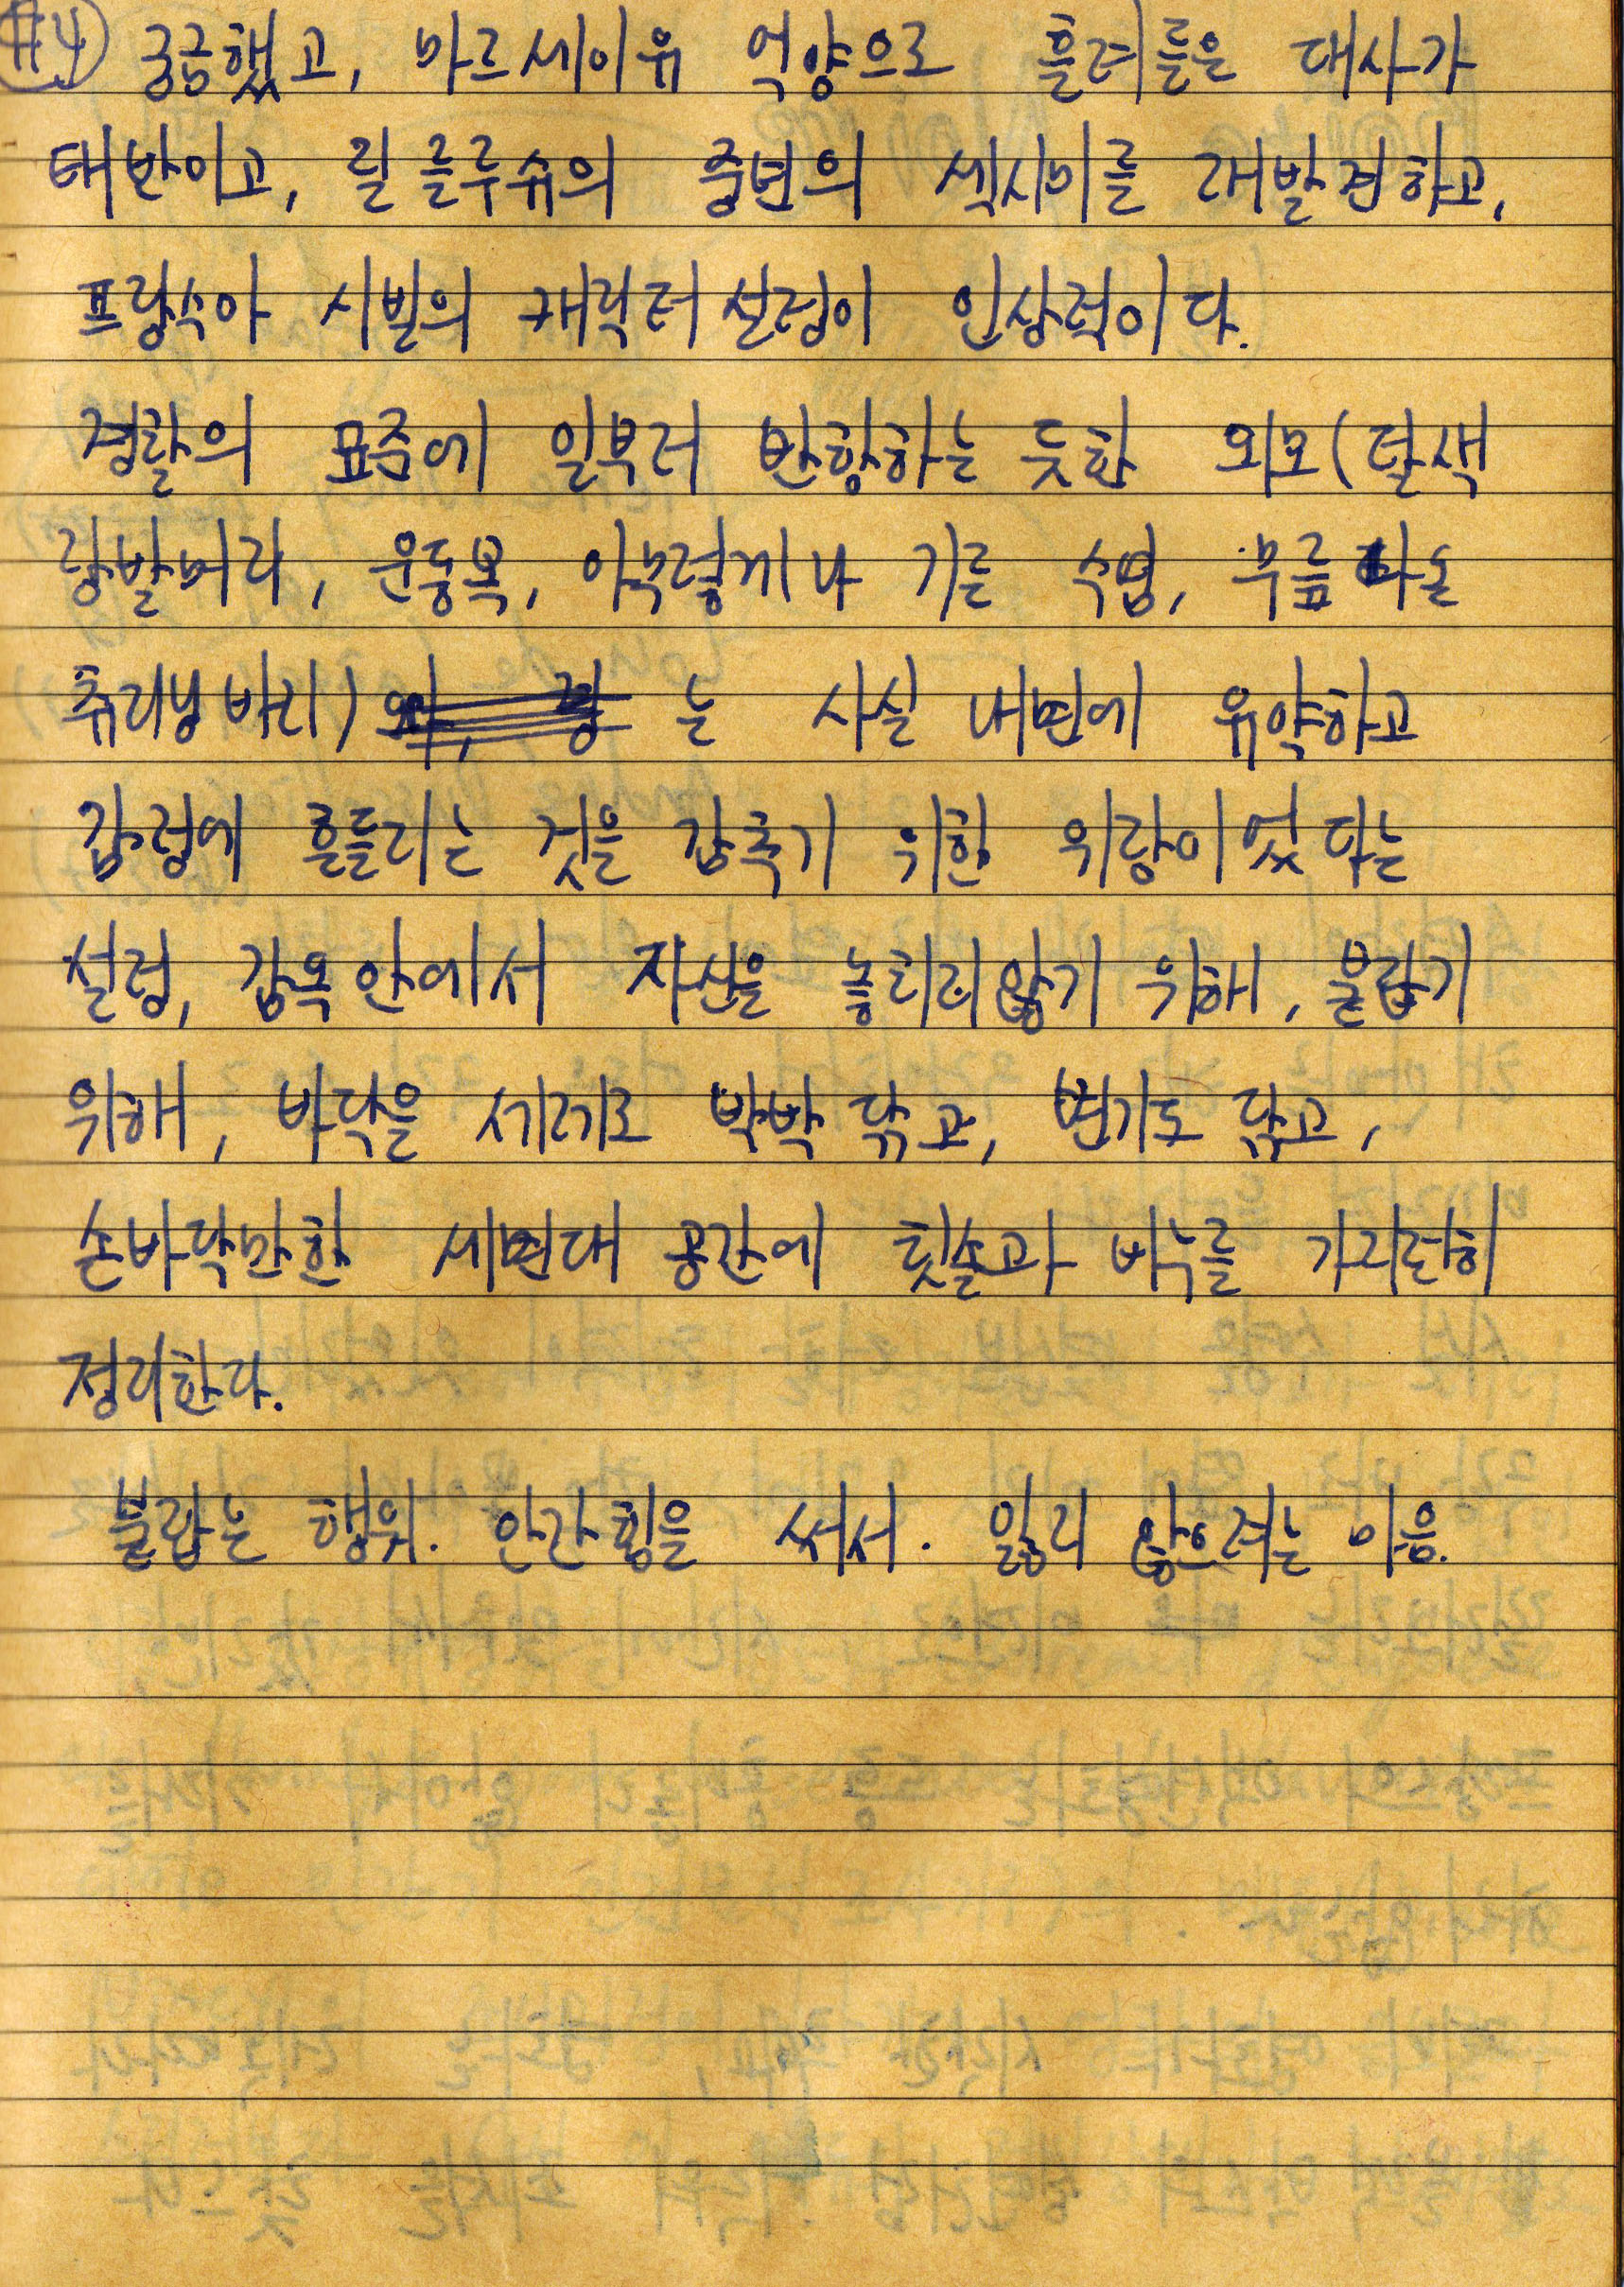 #4 궁금했고, 마르세이유 억양으로 흘려들을 대사가
태반이고, 질 를루슈의 중년의 섹시미를 재발견하고,
프랑수아 시빌의 캐릭터 설정이 인상적이다.
경찰의 표준에 일부러 반항하는 듯한 외모(탈색
장발머리, 운동복, 아무렇게나 기른 수염, 무릎 나온
츄리닝 바지) 는 사실 내면에 유약하고
감정에 흔들리는 것을 감추기 위한 위장이었다는
설정, 감옥 안에서 자신을 놓치지 않기 위해, 붙잡기
위해, 바닥을 세제로 박박 닦고, 변기도 닦고,
손바닥만한 세면대 공간에 칫솔과 비누를 가지런히
정리한다.
붙잡는 행위. 안간힘을 써서. 잃지 않으려는 마음.